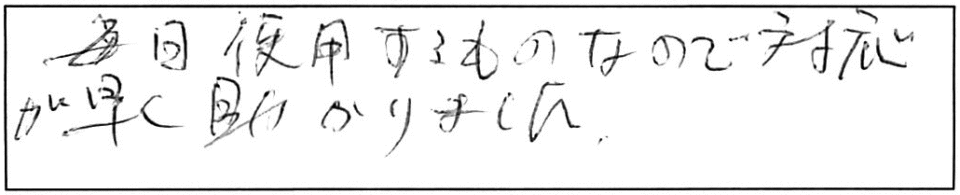 毎日使用するものなので対応
が早く助かりました.